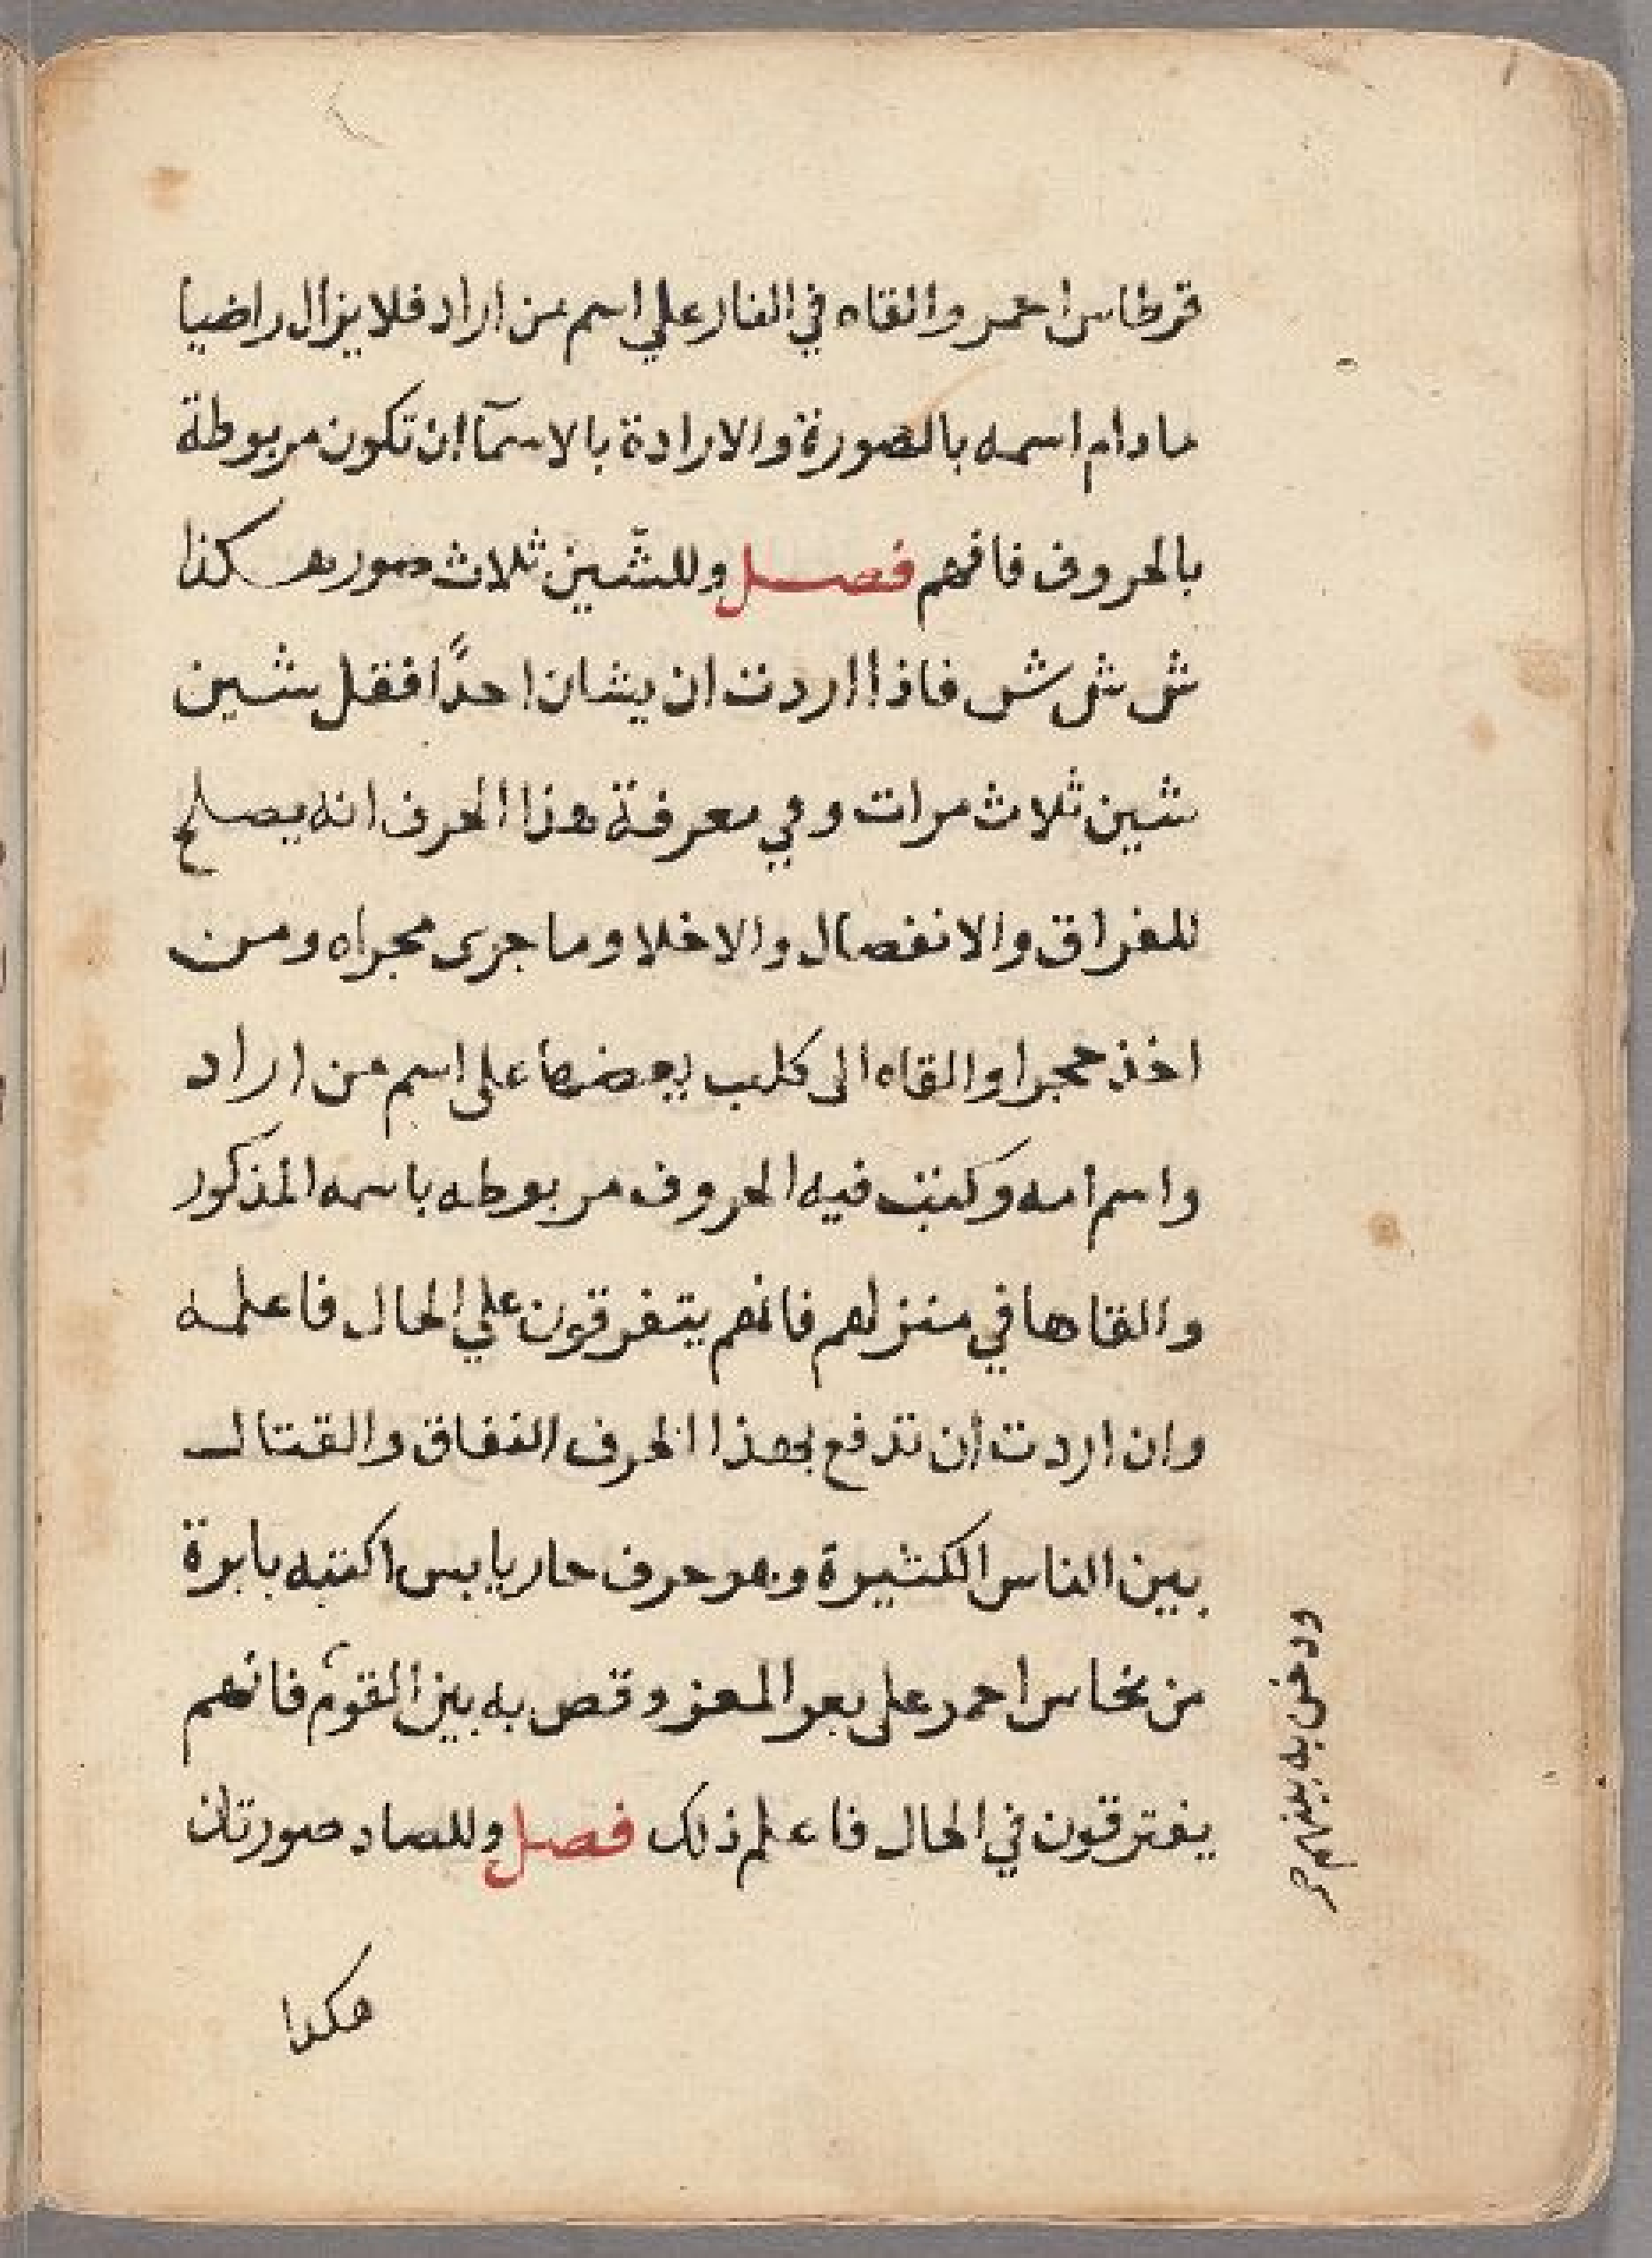 قرطاس احمر والقاه في النار علي اسم من اراد فلا يزال راضيا
مادام اسمه بالصورة والارادة بالاسمآ ان تكون مربوطة
بالحروف فافهم فصل وللشّين ثلاث صور هكذا
ش ش ش فاذا اردت ان يشان احدًا فقل شين
شين ثلاث مرات وفي معرفة هذا الحرف انه يصلح
للفراق والانفصال والاخلا وما جرى مجراه ومن
اخذ حجرا والقاه الى كلب يعضها على اسم من اراد
واسم امه وكتب فيه الحروف مربوطه باسمه المذكور
والقاها في منزلهم فانهم يتفرقون علي الحال فاعلمه
وان اردت ان تدفع بهذا الحرف النفاق والقتال
بين الناس الكثيرة وهو حرف حار يابس اكتبه بابرة
من نحاس احمر على بعر المعز وقص به بين القوم فانهم
يفترقون في الحال فاعلم ذلك فصل وللصاد صورتان
ودخن به بينهم
هكذا